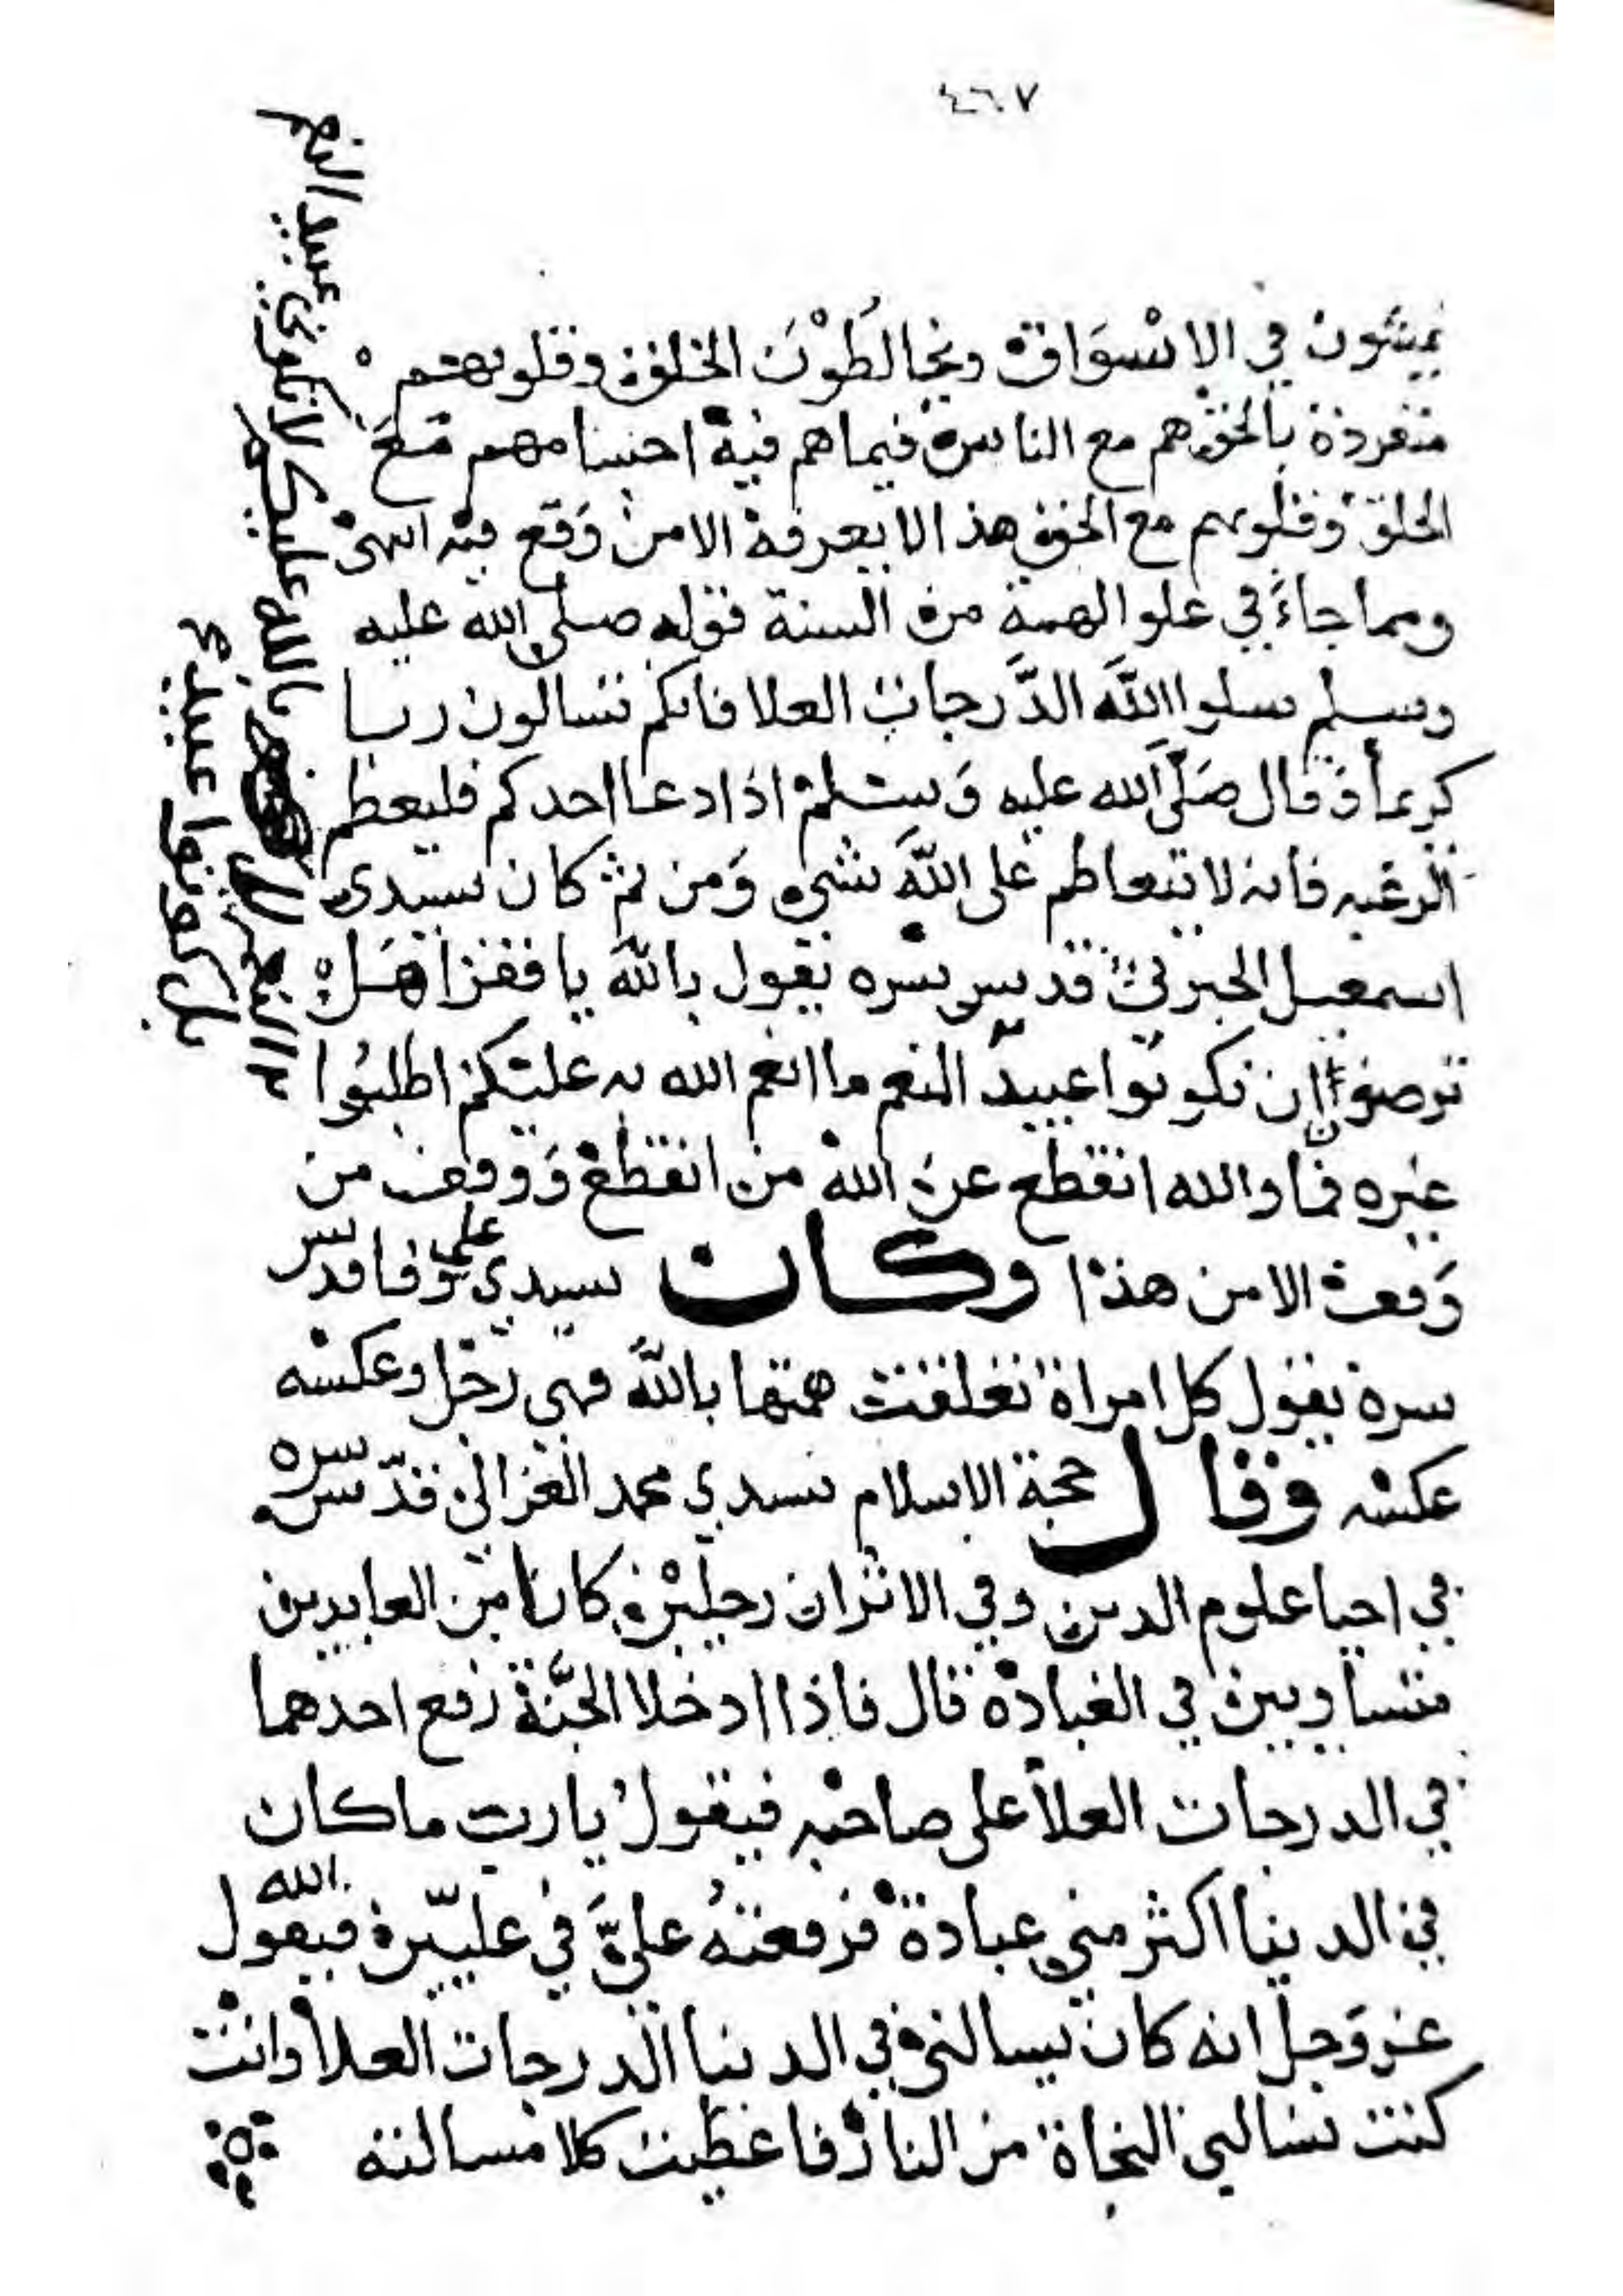 ٤٦٠٧
يمشون في الاسواق ويخالطون الخلق وقلوبهم
منفردة بالحق هم مع الناس فيما هم فيه اجسامهم مع
الخلق وقلوبهم مع الحق هذا لا يعرفه الا من وقع فيه انتهى
ومما جاء في علو الهمة من السنة قوله صلى الله عليه
وسلم سلوا الله الدرجات العلا فانكم تسالون ربا
كريما وقال صلى الله عليه وسلم اذا دعا احدكم فليعظم
الرغبه فانه لا يتعاظم على الله شي ومن ثم كان سيدى
اسمعيل الجبرتي قدس سره يقول بالله يا فقرا هل
ترضوا ان تكونوا عبيد النعم ما انعم الله به عليكم اطلبوا
غيره فما والله انقطع عن الله من انقطع ووقف من
وقف الا من هذا وكان سيدي علي وفا قدس
سره يقول كل امراة تعلقت همتها بالله فهي رجل وعكسه
عكسه وقال حجة الاسلام سيدي محمد الغزالي قدس سره
في احيا علوم الدين وفي الاثر ان رجلين كانا من العابدين
متساويين في العبادة قال فاذا ادخلا الجنة رفع احدهما
في الدرجات العلا على صاحبه فيقول يا رب ما كان
في الدنيا اكثر مني عبادة فرفعته علي في عليين فيقول الله
عز وجل انه كان يسالني في الدنيا الدرجات العلا وانت
كنت تسالني النجاة من النار فاعطيت كلا مسالته
بالله عليكم لا تكونوا عبيد النعم
بل كونوا عبيد